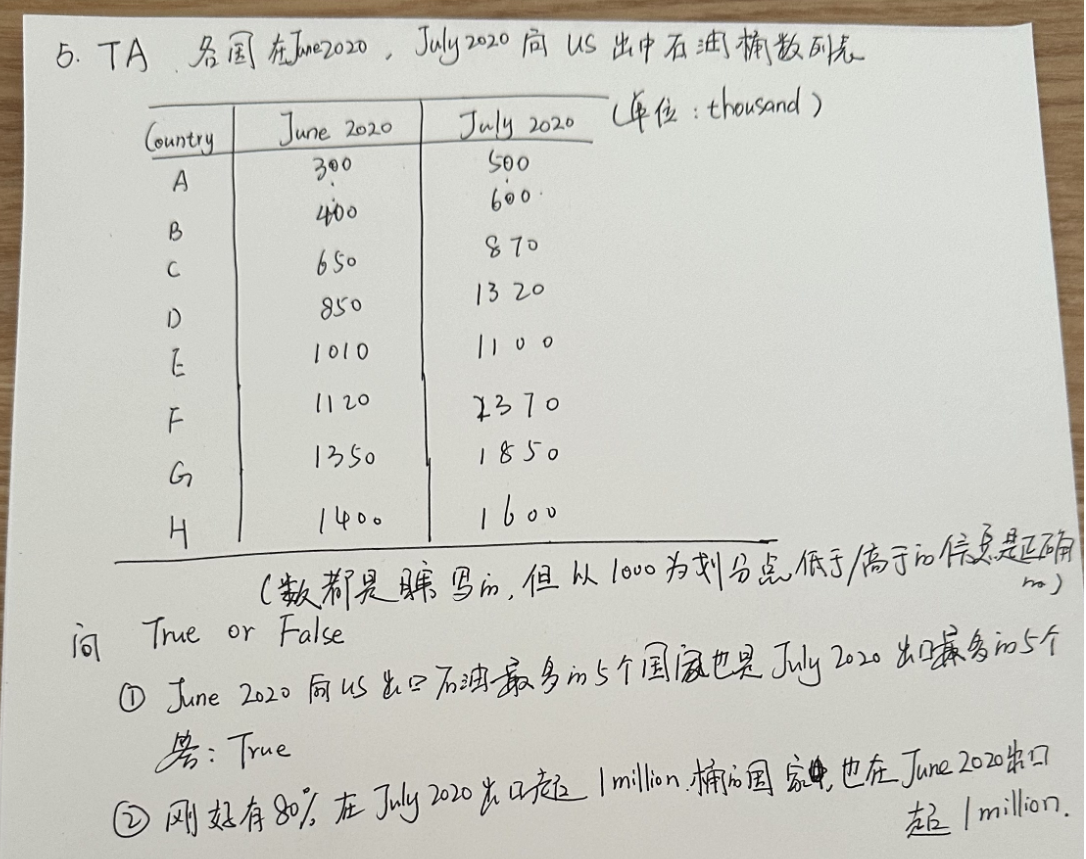 5. TA 各国在June2020, July2020向US出中石油桶数列表
(单位:thousand)
Country June 2020 July 2020
A 300 500
B 400 600
C 650 870
D 850 1320
E 1010 1100
F 1120 2370
G 1350 1850
H 1400 1600
(数都是瞎写的,但以1000为划分点,低于/高于的信息是正确的)
问 True or False
① June 2020向US出口石油最多的5个国家也是July 2020出口最多的5个
答: True
② 刚好有80%在July 2020出口超 1 million 桶的国家中,也在June 2020出口
超 1 million.